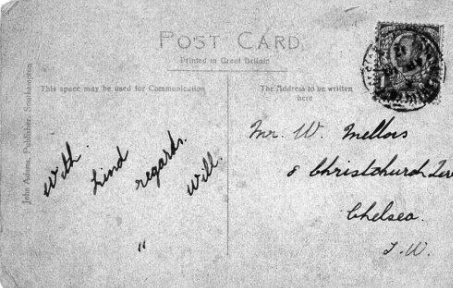 POST CARD.
Printed in Great Britain
This space may be used for Communication
The Address to be written
here
John Adams, Publisher, Southampton
With
kind
regards.
Will.
"
Mr. W. Mellors
8 Christchurch Terr
Chelsea.
S.W.